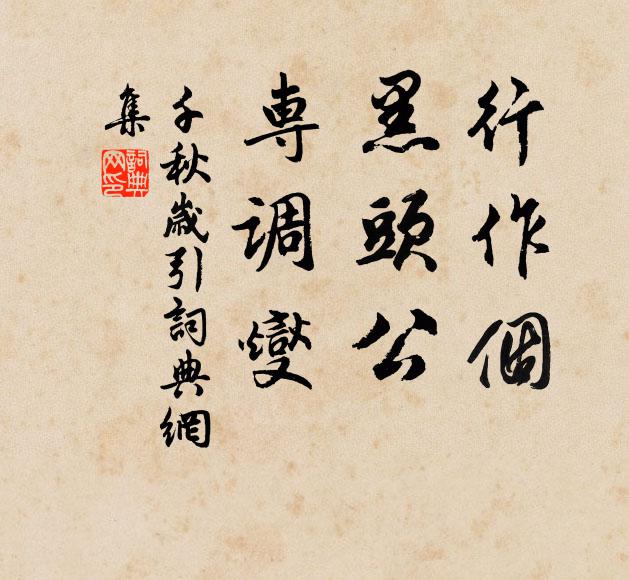 行作個
黑頭公
專調燮
千秋歲引詞典網
集
詞典
网印